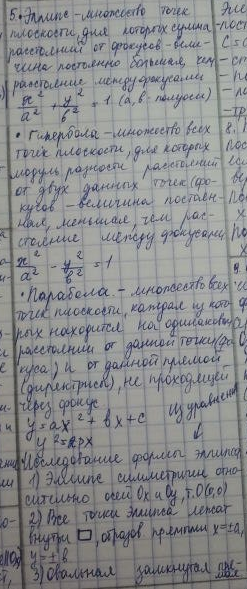 5. Эллипс - множество точек
плоскости, для которых сумма
расстояний от фокусов - вели-
чина постоянно большая, чем
расстояние между фокусами
x²/a² + y²/b² = 1 (a, b - полуоси)
• Гипербола - множество всех
точек плоскости, для которых
модуль разности, расстояний
от двух данных точек (фо-
кусов - величина постоян-
ная, меньшая, чем рас-
стояние между фокусами
x²/a² - y²/b² = 1
• Парабола - множество всех
точек плоскости, каждая из кото-
рых находится на одинаковом
расстоянии от данной точки (фо-
куса) и от данной прямой
(директрисы), не проходящей
через фокус
y = ax² + bx + c
Из уравнения
↓
y² = 2px
Исследование формы эллипса
1) Эллипс симметричен отно-
сительно осей Ox и Oy, т. O(0,0)
2) Все точки эллипса лежат
внутри □, образов прямыми x = ±a,
y = ± b
3) Овальная замкнутая